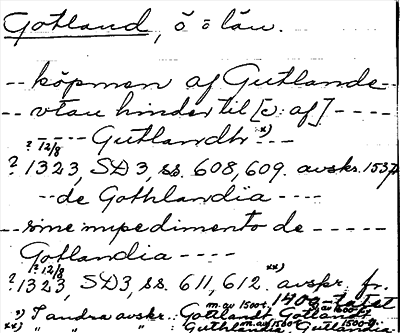 Gotland, ö o län.
-- köpmen af Gutlande --
-- vtan hinder til [ɔ: af] ----
? 12/8 ---- Gutlandh x) --
? 1323, SD 3, ss. 608, 609. avskr. 1537
-- de Gothlandia ----
-- sine impedimento de -----
Gotlandia ----
? 12/8
? 1323, SD 3, ss. 611, 612. xx) avskr. fr.
1400-talet
x) I andra avskr. Gottlandt m. av 1500 t. Gotland
xx) " " " Guthlandia m. av 1500 t. Gutlandia